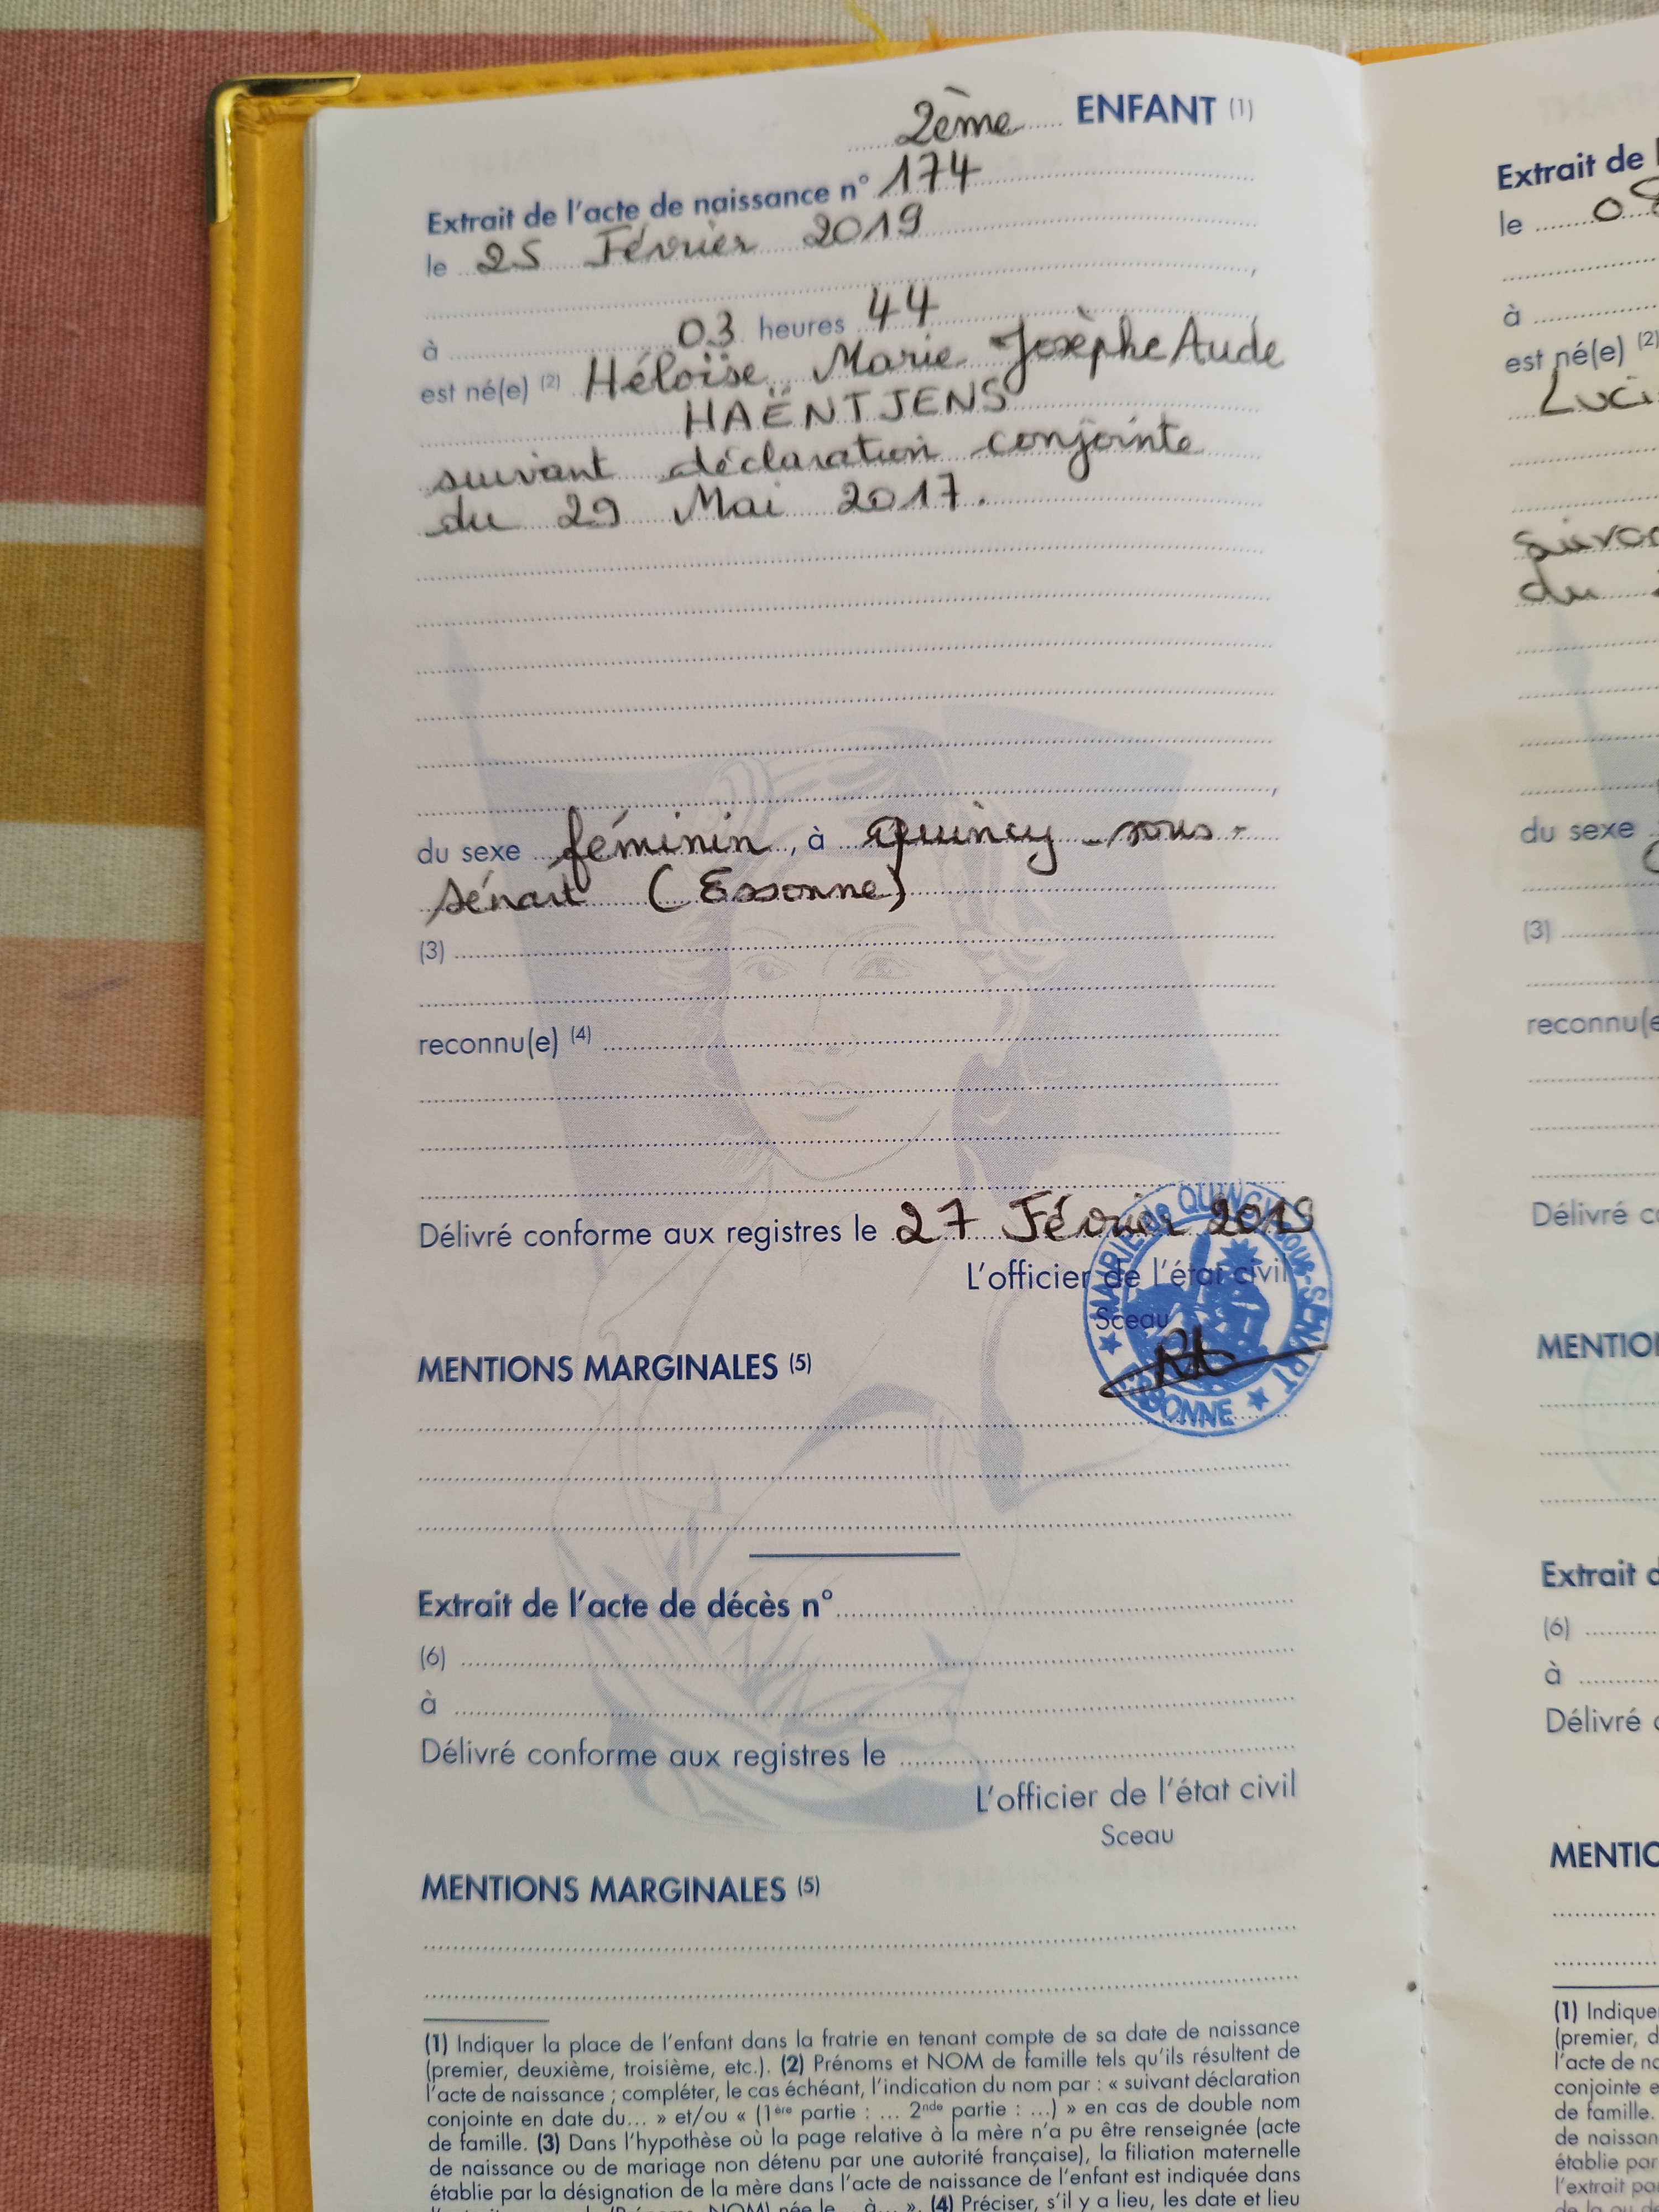 2ème ENFANT (1)
Extrait de l'acte de naissance n° 174
le 25 Février 2019
,
à 03 heures 44
est né(e) (2) Héloïse Marie Josèphe Aude
HAËNTJENS
suivant déclaration conjointe
du 29 Mai 2017.
,
du sexe féminin, à Quincy-sous-
Sénart (Essonne)
(3)
reconnu(e) (4)
Délivré conforme aux registres le 27 Février 2019
L'officier de l'état civil
Sceau
MAIRIE de QUINCY-sous-SENART
ESSONNE
MENTIONS MARGINALES (5)
Extrait de l'acte de décès n°
(6)
à
Délivré conforme aux registres le
L'officier de l'état civil
Sceau
MENTIONS MARGINALES (5)
(1) Indiquer la place de l'enfant dans la fratrie en tenant compte de sa date de naissance
(premier, deuxième, troisième, etc.). (2) Prénoms et NOM de famille tels qu'ils résultent de
l'acte de naissance ; compléter, le cas échéant, l'indication du nom par : « suivant déclaration
conjointe en date du... » et/ou « (1ère partie : ... 2nde partie : ...) » en cas de double nom
de famille. (3) Dans l'hypothèse où la page relative à la mère n'a pu être renseignée (acte
de naissance ou de mariage non détenu par une autorité française), la filiation maternelle
établie par la désignation de la mère dans l'acte de naissance de l'enfant est indiquée dans
(Prénoms, NOM) née le... à... ». (4) Préciser, s'il y a lieu, les date et lieu
Extrait de
le 08
à
est né(e) (2)
Luci
du
du sexe
(3)
reconnu(e
Délivré
MENTIO
Extrait
(6)
à
Délivré
MENTIO
(1) Indique
(premier, d
l'acte de na
conjointe e
de famille.
de naissan
établie par
l'extrait par